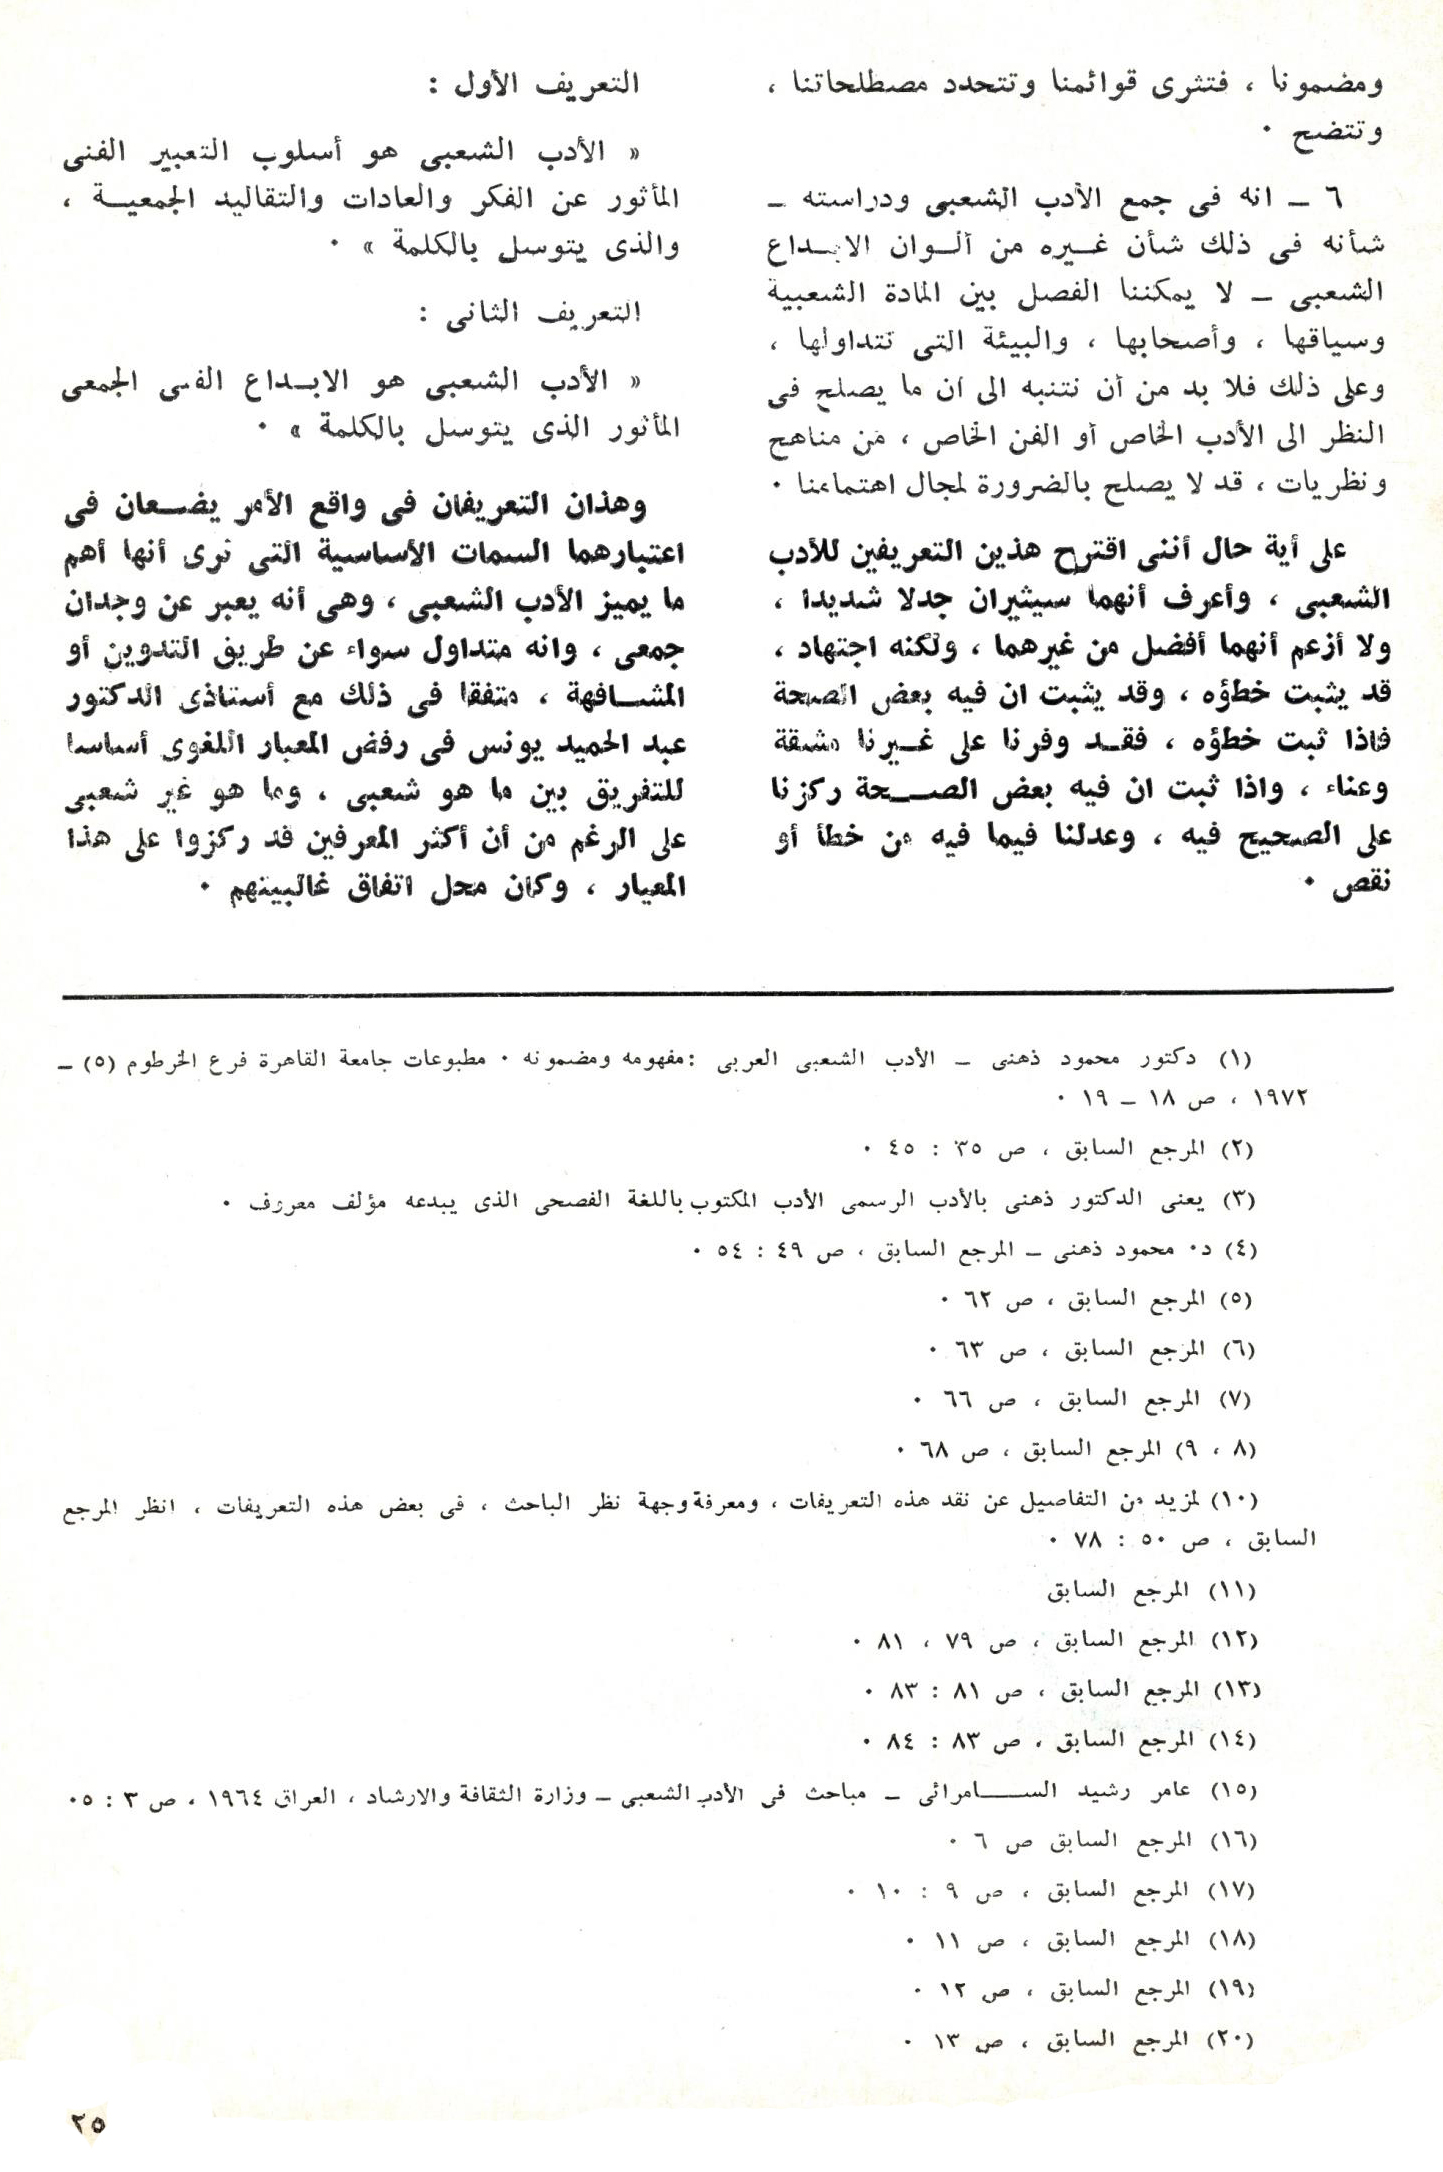 ومضمونا ، فتثرى قوائمنا وتتحدد مصطلحاتنا ،
وتتضح ٠
٦ ـ انه فى جمع الأدب الشعبى ودراسته ـ
شأنه فى ذلك شأن غـيره من ألـوان الابـداع
الشعبى ـ لا يمكننا الفصل بين المادة الشعبية
وسياقها ، وأصحابها ، والبيئة التى تتداولها ،
وعلى ذلك فلا بد من أن نتنبه الى أن ما يصلح فى
النظر الى الأدب الخاص أو الفن الخاص ، من مناهج
ونظريات ، قد لا يصلح بالضرورة لمجال اهتمامنا ٠
على أية حال أننى اقترح هذين التعريفين للأدب
الشعبى ، وأعرف أنهما سيثيران جدلا شديدا ،
ولا أزعم أنهما أفضل من غيرهما ، ولكنه اجتهاد ،
قد يثبت خطؤه ، وقد يثبت ان فيه بعض الصحة
فاذا ثبت خطؤه ، فقـد وفرنا على غـيرنا مشقة
وعناء ، واذا ثبت ان فيه بعض الصــحة ركزنا
على الصحيح فيه ، وعدلنا فيما فيه من خطأ أو
نقص ٠
التعريف الأول :
« الأدب الشعبى هو أسلوب التعبير الفنى
المأثور عن الفكر والعادات والتقاليد الجمعيـة ،
والذى يتوسل بالكلمة » ٠
التعريف الثانى :
« الأدب الشعبى هو الابـداع الفنى الجمعى
المأثور الذى يتوسل بالكلمة » ٠
وهذان التعريفان فى واقع الأمر يضـعان فى
اعتبارهما السمات الأساسية التى نرى أنها أهم
ما يميز الأدب الشعبى ، وهى أنه يعبر عن وجدان
جمعى ، وانه متداول سواء عن طريق التدوين أو
المشـافهة ، متفقا فى ذلك مع أستاذى الدكتور
عبد الحميد يونس فى رفض المعيار اللغوى أساسا
للتفريق بين ما هو شعبى ، وما هو غير شعبى
على الرغم من أن أكثر المعرفين قد ركزوا على هذا
المعيار ، وكان محل اتفاق غالبيتهم ٠
(١) دكتور محمود ذهنى ـ الأدب الشعبى العربى : مفهومه ومضمونه ٠ مطبوعات جامعة القاهرة فرع الخرطوم (٥) ـ
١٩٧٢ ، ص ١٨ ـ ١٩ ٠
(٢) المرجع السابق ، ص ٣٥ : ٤٥ ٠
(٣) يعنى الدكتور ذهنى بالأدب الرسمى الأدب المكتوب باللغة الفصحى الذى يبدعه مؤلف معروف ٠
(٤) د٠ محمود ذهنى ـ المرجع السابق ، ص ٤٩ : ٥٤ ٠
(٥) المرجع السابق ، ص ٦٢ ٠
(٦) المرجع السابق ، ص ٦٣ ٠
(٧) المرجع السابق ، ص ٦٦ ٠
(٨ ، ٩) المرجع السابق ، ص ٦٨ ٠
(١٠) لمزيد من التفاصيل عن نقد هذه التعريفات ، ومعرفة وجهة نظر الباحث ، فى بعض هذه التعريفات ، انظر المرجع
السابق ، ص ٥٠ : ٧٨ ٠
(١١) المرجع السابق
(١٢) المرجع السابق ، ص ٧٩ ، ٨١ ٠
(١٣) المرجع السابق ، ص ٨١ : ٨٣ ٠
(١٤) المرجع السابق ، ص ٨٣ : ٨٤ ٠
(١٥) عامر رشيد الســـامرائى ـ مباحث فى الأدب الشعبى ـ وزارة الثقافة والارشاد ، العراق ١٩٦٤ ، ص ٣ : ٥٠
(١٦) المرجع السابق ص ٦ ٠
(١٧) المرجع السابق ، ص ٩ : ١٠ ٠
(١٨) المرجع السابق ، ص ١١ ٠
(١٩) المرجع السابق ، ص ١٢ ٠
(٢٠) المرجع السابق ، ص ١٣ ٠
٢٥